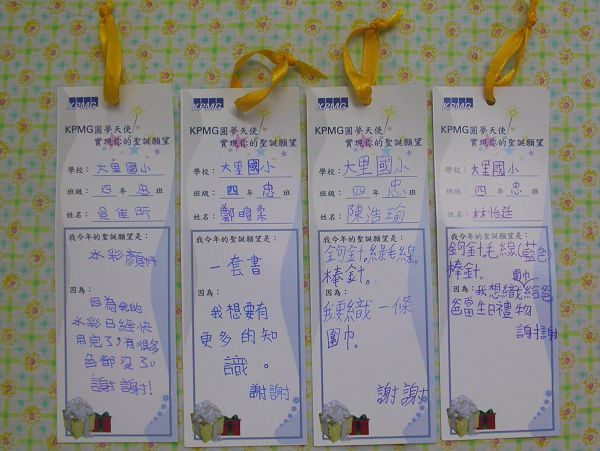 KPMG
KPMG圓夢天使
實現你的聖誕願望
學校：大里國小
班級：四 年 忠 班
姓名：吳佳昕
我今年的聖誕願望是：
水彩顏料
因為：
因為我的
水彩已經快
用完了，有很多
色都沒了。
謝謝！
KPMG
KPMG圓夢天使
實現你的聖誕願望
學校：大里國小
班級：四 年 忠 班
姓名：鄭暐柔
我今年的聖誕願望是：
一套書
因為：
我想要有
更多的知
識。
謝謝
KPMG
KPMG圓夢天使
實現你的聖誕願望
學校：大里國小
班級：四 年 忠 班
姓名：陳浩瑜
我今年的聖誕願望是：
鉤針。綠毛線。
棒針。
因為：
我要織一條
圍巾。
謝謝
KPMG
KPMG圓夢天使
實現你的聖誕願望
學校：大里國小
班級：四 年 忠 班
姓名：林怡廷
我今年的聖誕願望是：
鉤針毛線(藍色)
棒針。 圍巾
因為：我想織給爸
爸當生日禮物
謝謝